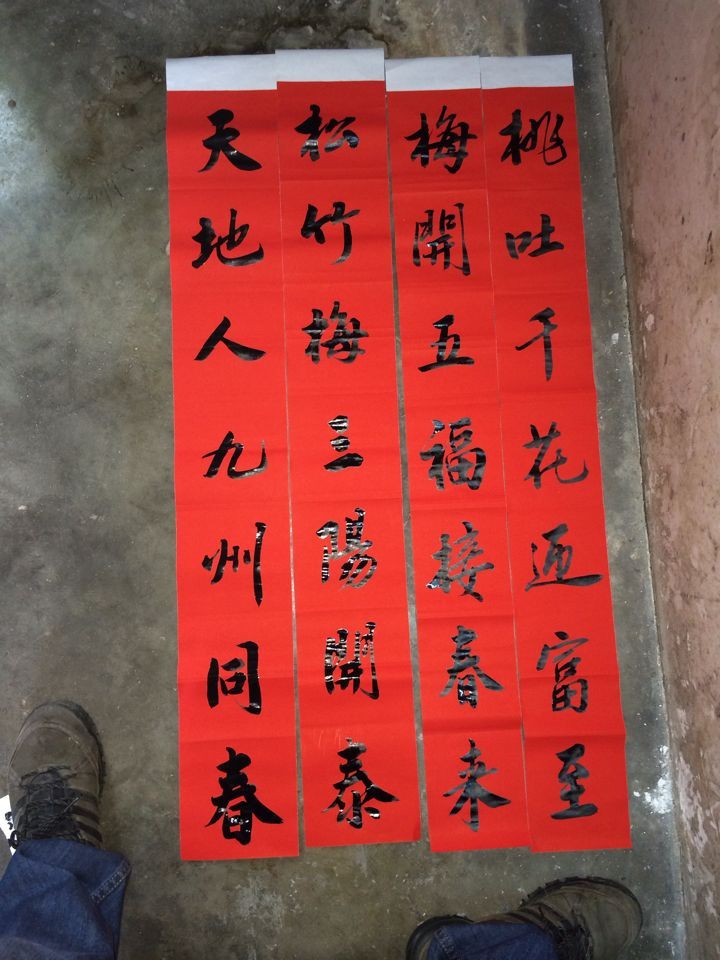 桃吐千花迎富至
梅開五福接春来
松竹梅三陽開泰
天地人九州同春